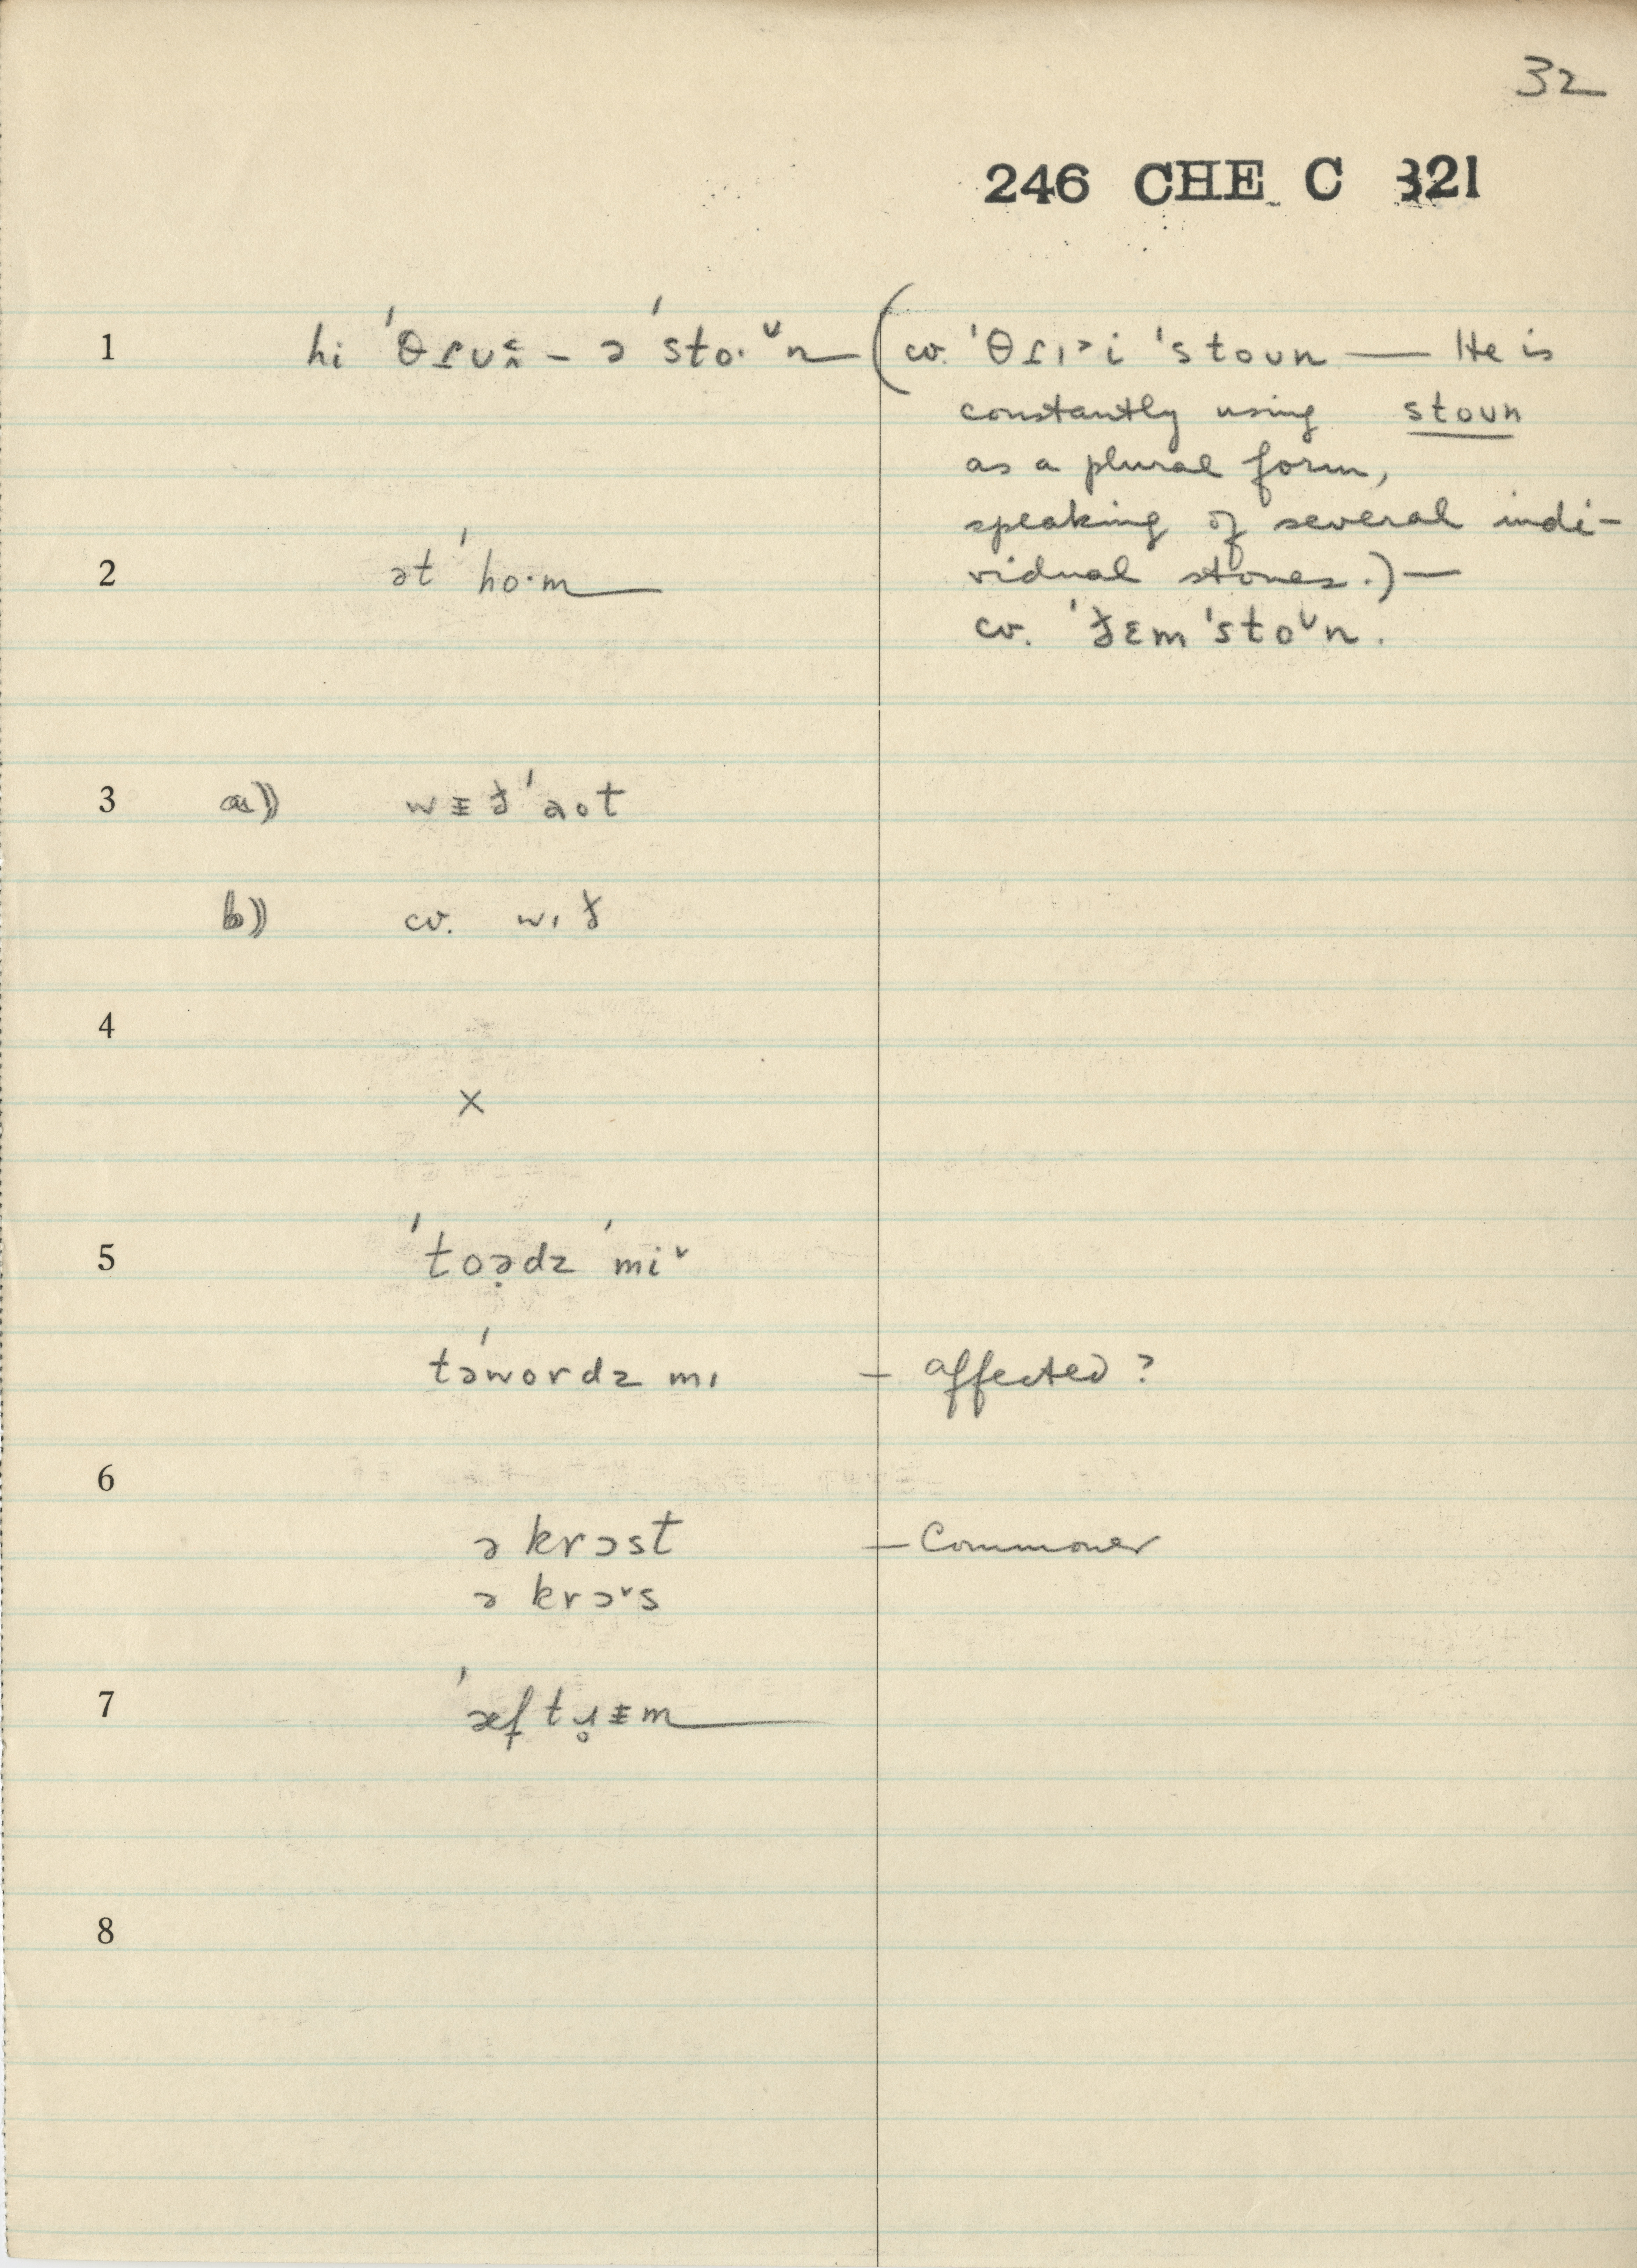 32
246 CHE C 321
1 hi ˈθɾu – ə ˈsto·ᵛn (cv. ˈθɾɪ˃i ˈstoun — He is
constantly using stoun
as a plural form,
speaking of several indi-
vidual stones.) —
2 ət ˈho·m
cv. ˈðɛm ˈstoᵛn.
3 a)) wᵻð ˈaot
b)) cv. wɪð
4
×
5 ˈtoə̣dz ˈmiᵛ
təˈwordz mɪ – affected?
6
ə krɔst – Commoner
ə krɔᵛs
7 ˈæftɹ̥ᵻm
8